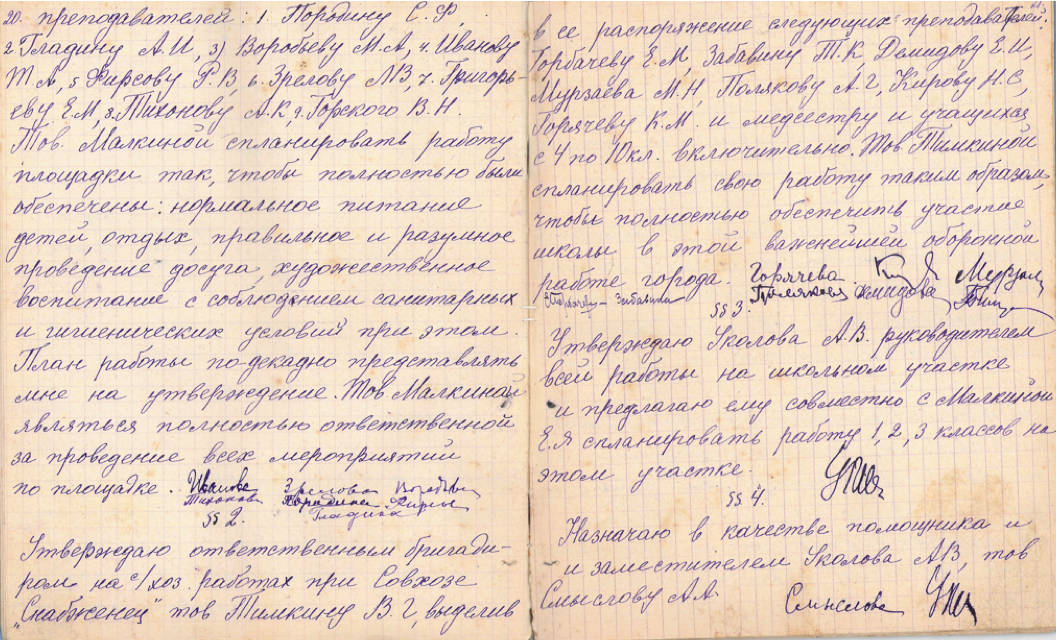 20. преподавателей: 1. Породину С.Ф.,
2 Гладину А.И, 3) Воробьеву М.А, 4. Иванову
Т.А, 5 Фирсову Р.В, 6. Зрелову Л.В, 7. Григорь-
еву Е.М, 8. Тихонову А.К, 9. Горского В.Н.
Тов. Малкиной спланировать работу
площадки так, чтобы полностью были
обеспечены: нормальное питание
детей, отдых, правильное и разумное
проведение досуга, художественное
воспитание с соблюдением санитарных
и гигиенических условий при этом.
План работы по-декадно представлять
мне на утверждение. Тов Малкиной
являться полностью ответственной
за проведение всех мероприятий
по площадке. Иванова Зрелова
Тихонова Гладина
§§ 2.
Утверждаю ответственным бригади-
ром на с/хоз. работах при Совхозе
„Снабженец" тов Тимкину В.Г, выделив
в ее распоряжение следующих преподавателей:
Горбачеву Е.М, Забавину Т.К, Демидову Е.И,
Мурзаева М.Н, Полякову А.Г, Кирову Н.С,
Горячеву К.М. и медсестру и учащихся
с 4 по 10 кл. включительно. Тов. Тимкиной
спланировать свою работу таким образом,
чтобы полностью обеспечить участие
школы в этой важнейшей оборонной
работе города. Горячева
Забавина Полякова
§§ 3.
Утверждаю Уколова А.В. руководителем
всей работы на школьном участке
и предлагаю ему совместно с Малкиной
Е.Я спланировать работу 1, 2, 3 классов на
этом участке.
§§ 4.
Назначаю в качестве помощника и
и заместителем Уколова А.В, тов
Смыслову А.А. Смыслова